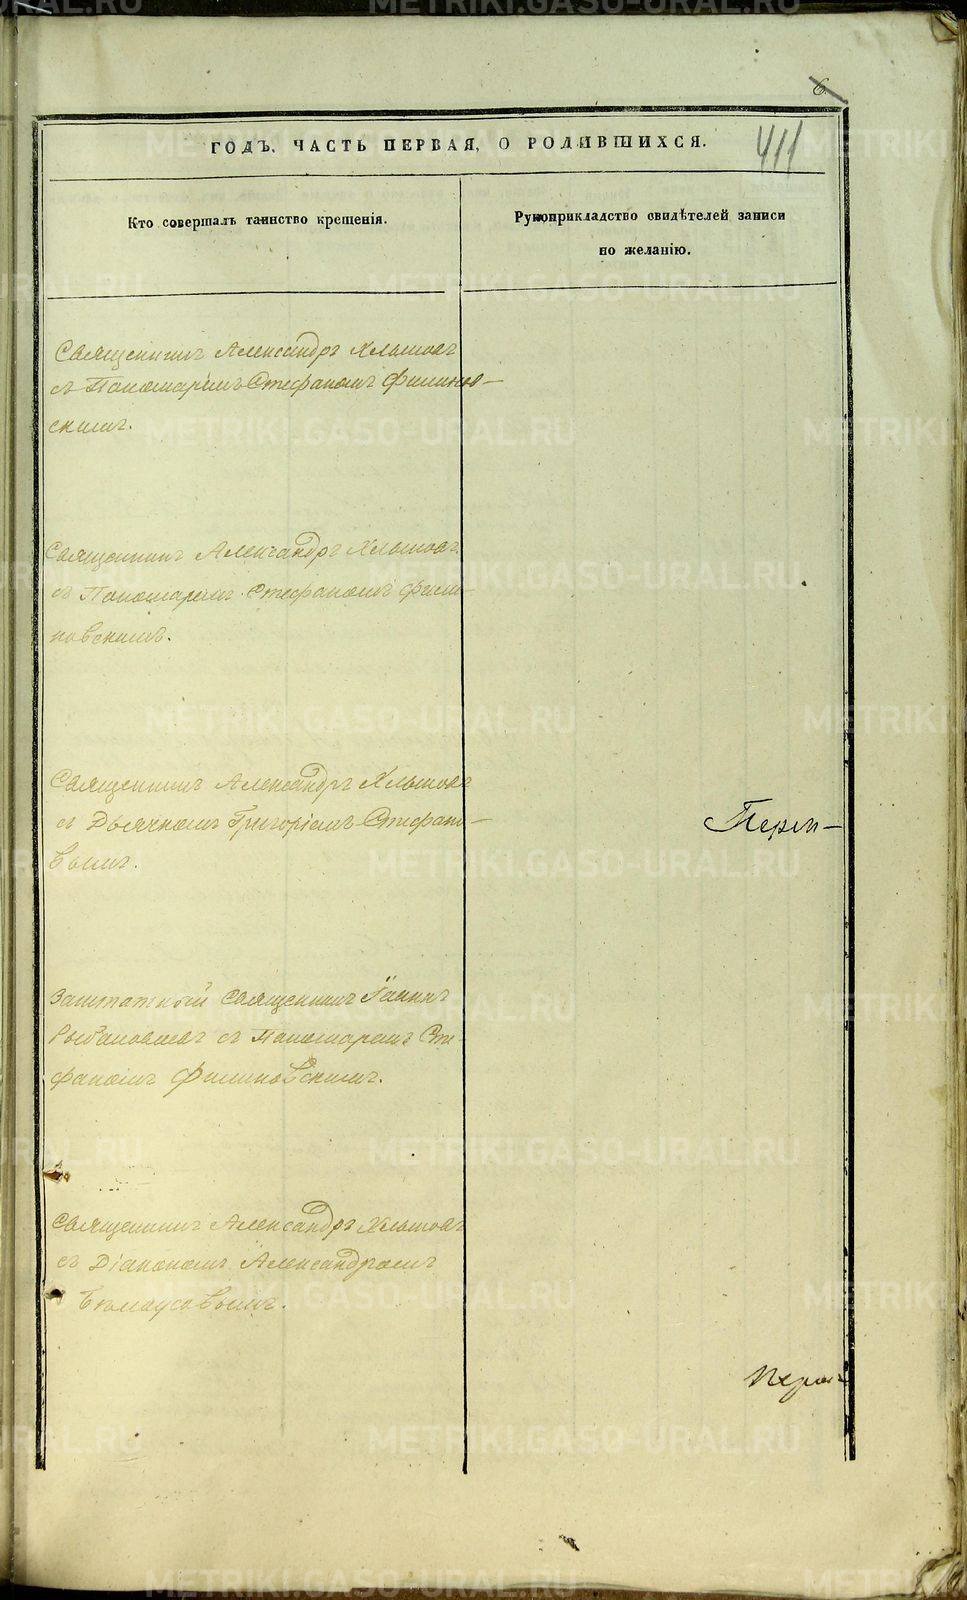 6
ГОДЪ, ЧАСТЬ ПЕРВАЯ, О РОДИВШИХСЯ.
411
Кто совершалъ таинство крещенія.
Рукоприкладство свидѣтелей записи
по желанію.
Священникъ Александръ Хлыновъ
съ Пономаремъ Стефаномъ Филинов-
скимъ.
Священникъ Александръ Хлыновъ
съ Пономаремъ Стефаномъ Фили-
новскимъ.
Священникъ Александръ Хлыновъ
съ Дьячкомъ Григоріемъ Стефано-
вымъ.
Перм-
Заштатной священникъ Іаннъ
съ Пономаремъ Сте-
фаномъ Филиновскимъ.
Священникъ Александръ Хлыновъ
съ Діакономъ Александромъ
METRIKI.GASO-URAL.RU